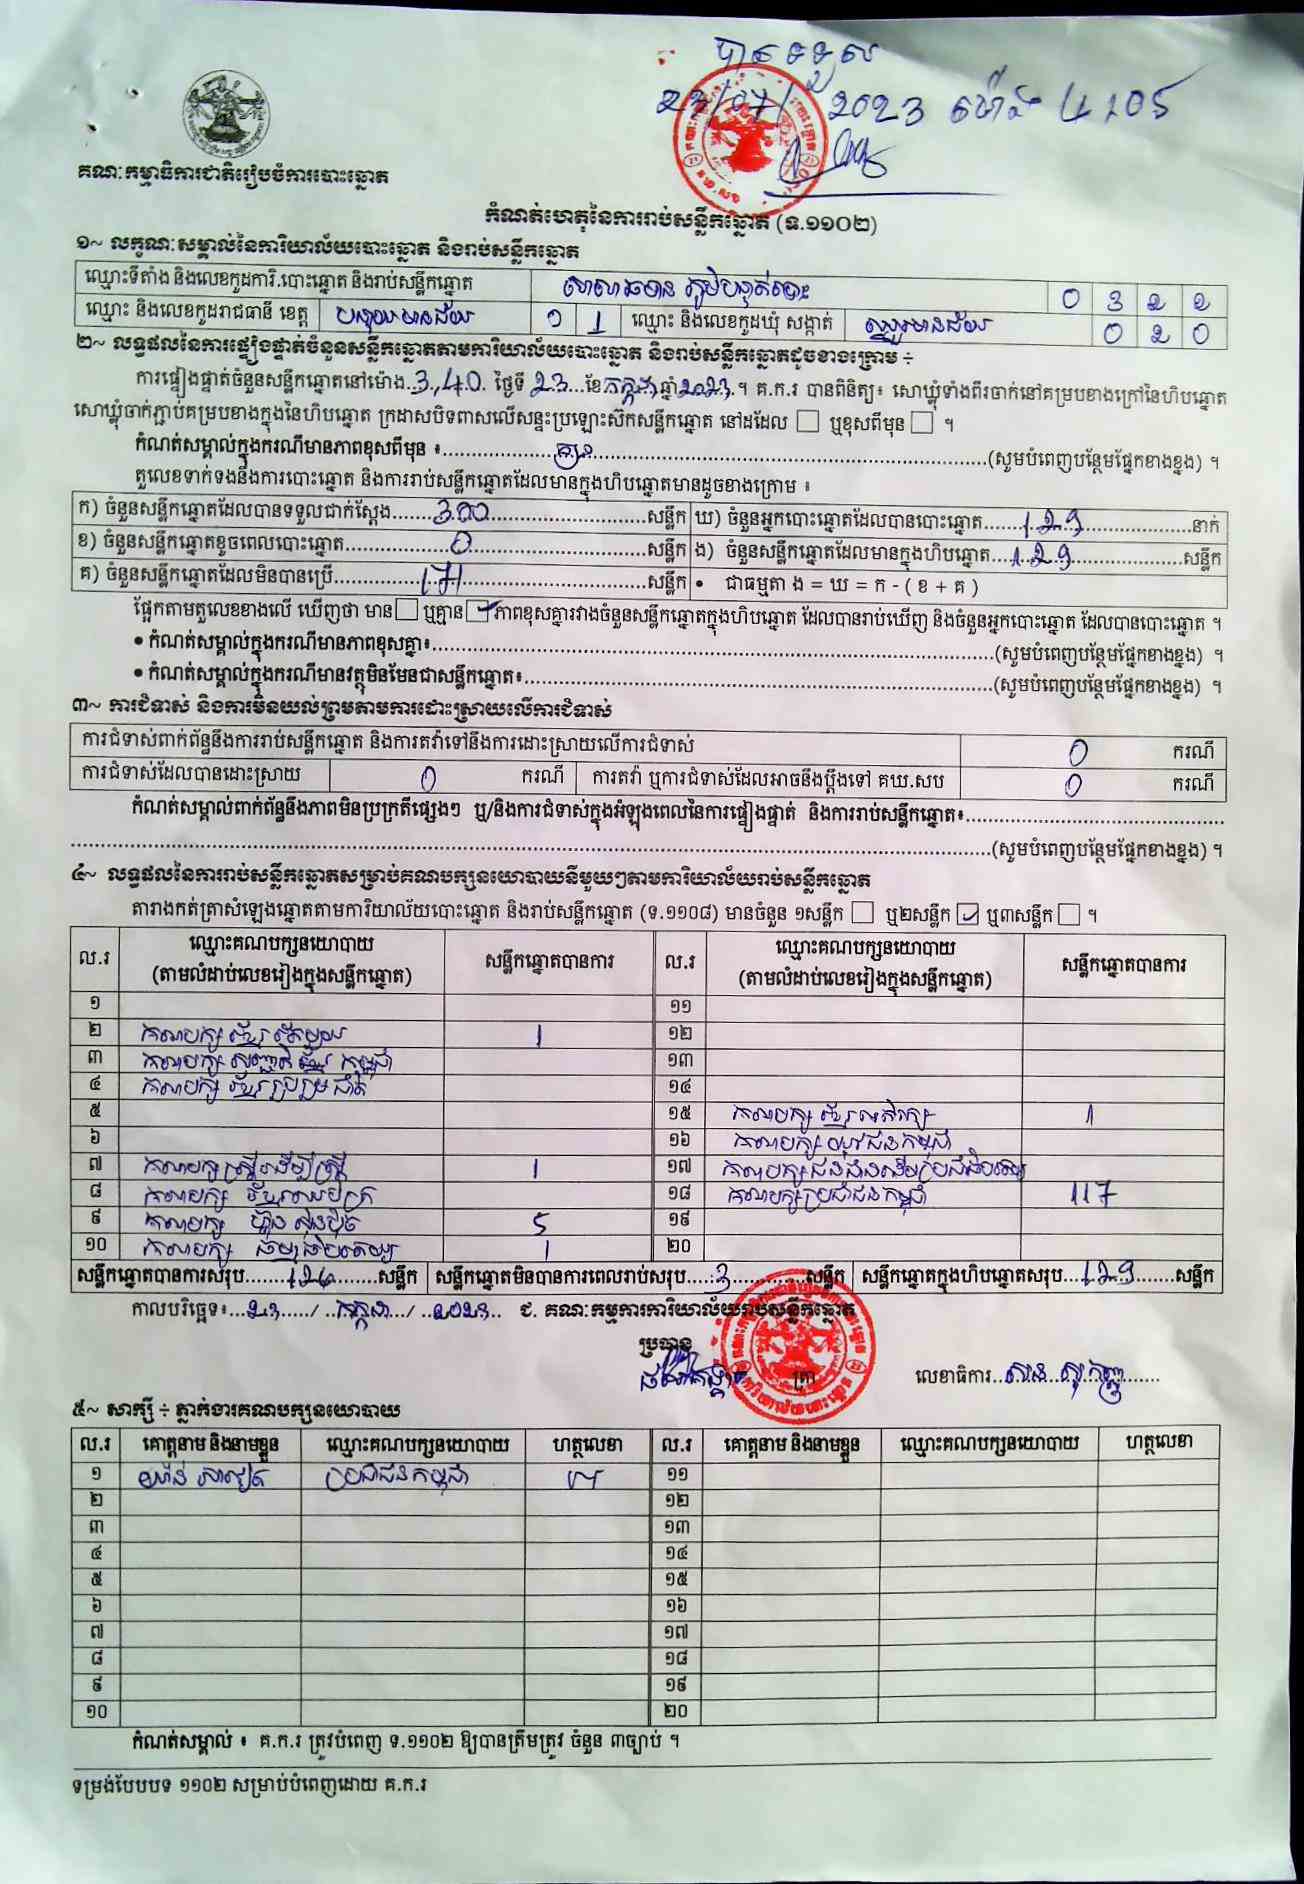 បានទទួល
23/07/2023 ម៉ោង 4:05
គណៈកម្មាធិការជាតិរៀបចំការបោះឆ្នោត
កំណត់ហេតុនៃការរាប់សន្លឹកឆ្នោត (ទ.១១០២)
១~ លក្ខណៈសម្គាល់នៃការិយាល័យបោះឆ្នោត និងរាប់សន្លឹកឆ្នោត
ឈ្មោះទីតាំង និងលេខកូដការិ.បោះឆ្នោត និងរាប់សន្លឹកឆ្នោត 0 3 2 2
ឈ្មោះ និងលេខកូដរាជធានី ខេត្ត បន្ទាយមានជ័យ ១ 1 ឈ្មោះ និងលេខកូដឃុំ សង្កាត់ 0 2 0
២~ លទ្ធផលនៃការផ្ទៀងផ្ទាត់ចំនួនសន្លឹកឆ្នោតតាមការិយាល័យបោះឆ្នោត និងរាប់សន្លឹកឆ្នោតដូចខាងក្រោម ÷
ការផ្ទៀងផ្ទាត់ចំនួនសន្លឹកឆ្នោតនៅម៉ោង..3:40. ថ្ងៃទី 23...ខែ.កក្កដា.ឆ្នាំ2023.។ គ.ក.រ បានពិនិត្យ៖ សោឃ្លុំទាំងពីរចាក់នៅគម្របខាងក្រៅនៃហិបឆ្នោត
សោឃ្លុំចាក់ភ្ជាប់គម្របខាងក្នុងនៃហិបឆ្នោត ក្រដាសបិទពាសលើសន្ទះប្រឡោះស៊កសន្លឹកឆ្នោត នៅដដែល ☐ ឬខុសពីមុន ☐ ។
កំណត់សម្គាល់ក្នុងករណីមានភាពខុសពីមុន ៖...គ្មាន...(សូមបំពេញបន្ថែមផ្នែកខាងខ្នង) ។
តួលេខទាក់ទងនឹងការបោះឆ្នោត និងការរាប់សន្លឹកឆ្នោតដែលមានក្នុងហិបឆ្នោតមានដូចខាងក្រោម ៖
ក) ចំនួនសន្លឹកឆ្នោតដែលបានទទួលជាក់ស្តែង...300...សន្លឹក ឃ) ចំនួនអ្នកបោះឆ្នោតដែលបានបោះឆ្នោត...129...នាក់
ខ) ចំនួនសន្លឹកឆ្នោតខូចពេលបោះឆ្នោត...0...សន្លឹក ង) ចំនួនសន្លឹកឆ្នោតដែលមានក្នុងហិបឆ្នោត...129...សន្លឹក
គ) ចំនួនសន្លឹកឆ្នោតដែលមិនបានប្រើ...171...សន្លឹក • ជាធម្មតា ង = ឃ = ក - ( ខ + គ )
ផ្អែកតាមតួលេខខាងលើ ឃើញថា មាន ☐ ឬគ្មាន ☑ ភាពខុសគ្នារវាងចំនួនសន្លឹកឆ្នោតក្នុងហិបឆ្នោត ដែលបានរាប់ឃើញ និងចំនួនអ្នកបោះឆ្នោត ដែលបានបោះឆ្នោត ។
• កំណត់សម្គាល់ក្នុងករណីមានភាពខុសគ្នា៖...(សូមបំពេញបន្ថែមផ្នែកខាងខ្នង) ។
• កំណត់សម្គាល់ក្នុងករណីមានវត្ថុមិនមែនជាសន្លឹកឆ្នោត៖...(សូមបំពេញបន្ថែមផ្នែកខាងខ្នង) ។
៣~ ការជំទាស់ និងការមិនយល់ព្រមតាមការដោះស្រាយលើការជំទាស់
ការជំទាស់ពាក់ព័ន្ធនឹងការរាប់សន្លឹកឆ្នោត និងការតវ៉ាទៅនឹងការដោះស្រាយលើការជំទាស់ 0 ករណី
ការជំទាស់ដែលបានដោះស្រាយ 0 ករណី ការតវ៉ា ឬការជំទាស់ដែលអាចនឹងប្តឹងទៅ គឃ.សប 0 ករណី
កំណត់សម្គាល់ពាក់ព័ន្ធនឹងភាពមិនប្រក្រតីផ្សេងៗ ឬ/និងការជំទាស់ក្នុងអំឡុងពេលនៃការផ្ទៀងផ្ទាត់ និងការរាប់សន្លឹកឆ្នោត៖...
...(សូមបំពេញបន្ថែមផ្នែកខាងខ្នង) ។
៤~ លទ្ធផលនៃការរាប់សន្លឹកឆ្នោតសម្រាប់គណបក្សនយោបាយនីមួយៗតាមការិយាល័យរាប់សន្លឹកឆ្នោត
តារាងកត់ត្រាសំឡេងឆ្នោតតាមការិយាល័យបោះឆ្នោត និងរាប់សន្លឹកឆ្នោត (ទ.១១០៨) មានចំនួន ១សន្លឹក ☐ ឬ២សន្លឹក ☑ ឬ៣សន្លឹក ☐ ។
ល.រ ឈ្មោះគណបក្សនយោបាយ (តាមលំដាប់លេខរៀងក្នុងសន្លឹកឆ្នោត) សន្លឹកឆ្នោតបានការ ល.រ ឈ្មោះគណបក្សនយោបាយ (តាមលំដាប់លេខរៀងក្នុងសន្លឹកឆ្នោត) សន្លឹកឆ្នោតបានការ
១ ១១
២ គណបក្ស ខ្មែរ តែមួយ 1 ១២
៣ គណបក្ស សញ្ជាតិ ខ្មែរ កម្ពុជា ១៣
៤ គណបក្ស ខ្មែររួបរួមជាតិ ១៤
៥ ១៥ គណបក្ស ខ្មែរអភិរក្ស 1
៦ ១៦ គណបក្ស យុវជនកម្ពុជា
៧ គណបក្ស ស្ត្រី ដើម្បីស្ត្រី 1 ១៧
៨ គណបក្ស ១៨ គណបក្សប្រជាជនកម្ពុជា 117
៩ គណបក្ស ហ៊្វុនស៊ិនប៉ិច 5 ១៩
១០ គណបក្ស 1 ២០
សន្លឹកឆ្នោតបានការសរុប...126...សន្លឹក សន្លឹកឆ្នោតមិនបានការពេលរាប់សរុប...3...សន្លឹក សន្លឹកឆ្នោតក្នុងហិបឆ្នោតសរុប...129...សន្លឹក
កាលបរិច្ឆេទ៖...23.../...កក្កដា.../...2023... ជ. គណៈកម្មការការិយាល័យរាប់សន្លឹកឆ្នោត
ប្រធាន
ត្រា លេខាធិការ
៥~ សាក្សី ÷ ភ្នាក់ងារគណបក្សនយោបាយ
ល.រ គោត្តនាម និងនាមខ្លួន ឈ្មោះគណបក្សនយោបាយ ហត្ថលេខា ល.រ គោត្តនាម និងនាមខ្លួន ឈ្មោះគណបក្សនយោបាយ ហត្ថលេខា
១ ប្រជាជនកម្ពុជា ១១
២ ១២
៣ ១៣
៤ ១៤
៥ ១៥
៦ ១៦
៧ ១៧
៨ ១៨
៩ ១៩
១០ ២០
កំណត់សម្គាល់ ៖ គ.ក.រ ត្រូវបំពេញ ទ.១១០២ ឱ្យបានត្រឹមត្រូវ ចំនួន ៣ច្បាប់ ។
ទម្រង់បែបបទ ១១០២ សម្រាប់បំពេញដោយ គ.ក.រ